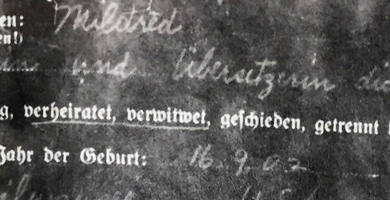 en: Mildred
en!)
und Übersetzerin die
g, verheiratet, verwitwet, geschieden, getrennt
Jahr der Geburt: 16.9.02